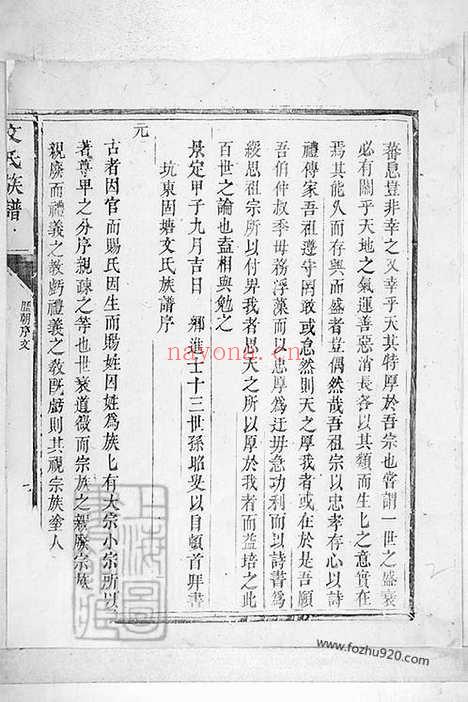 蕃息豈非幸之又幸乎天其特厚於吾宗也嘗謂一世之盛衰
必有關乎天地之氣運善惡消長各以其類而生生之意實在
焉其能久而存與而盛者豈偶然哉吾祖宗以忠孝存心以詩
禮傳家吾祖遵守罔敢或怠然則天之厚我者或在於是吾願
吾伯仲叔季毋務浮藻而以忠厚為迂毋急功利而以詩書為
緩思祖宗所以付畀我者思天之所以厚於我者而益培之此
百世之論也盍相與勉之
景定甲子九月吉日 鄉進士十三世孫以自頓首拜書
坑東固塘文氏族譜序
元
古者因官而賜氏因生而賜姓因姓為族匕有大宗小宗所以
著尊卑之分序親疎之等也世衰道微而宗族之親廢宗族
親廢而禮義之教虧禮義之教既虧則其視宗族塗人
文氏族譜
歷朝序文
nayong.cn
www.fozhu920.com